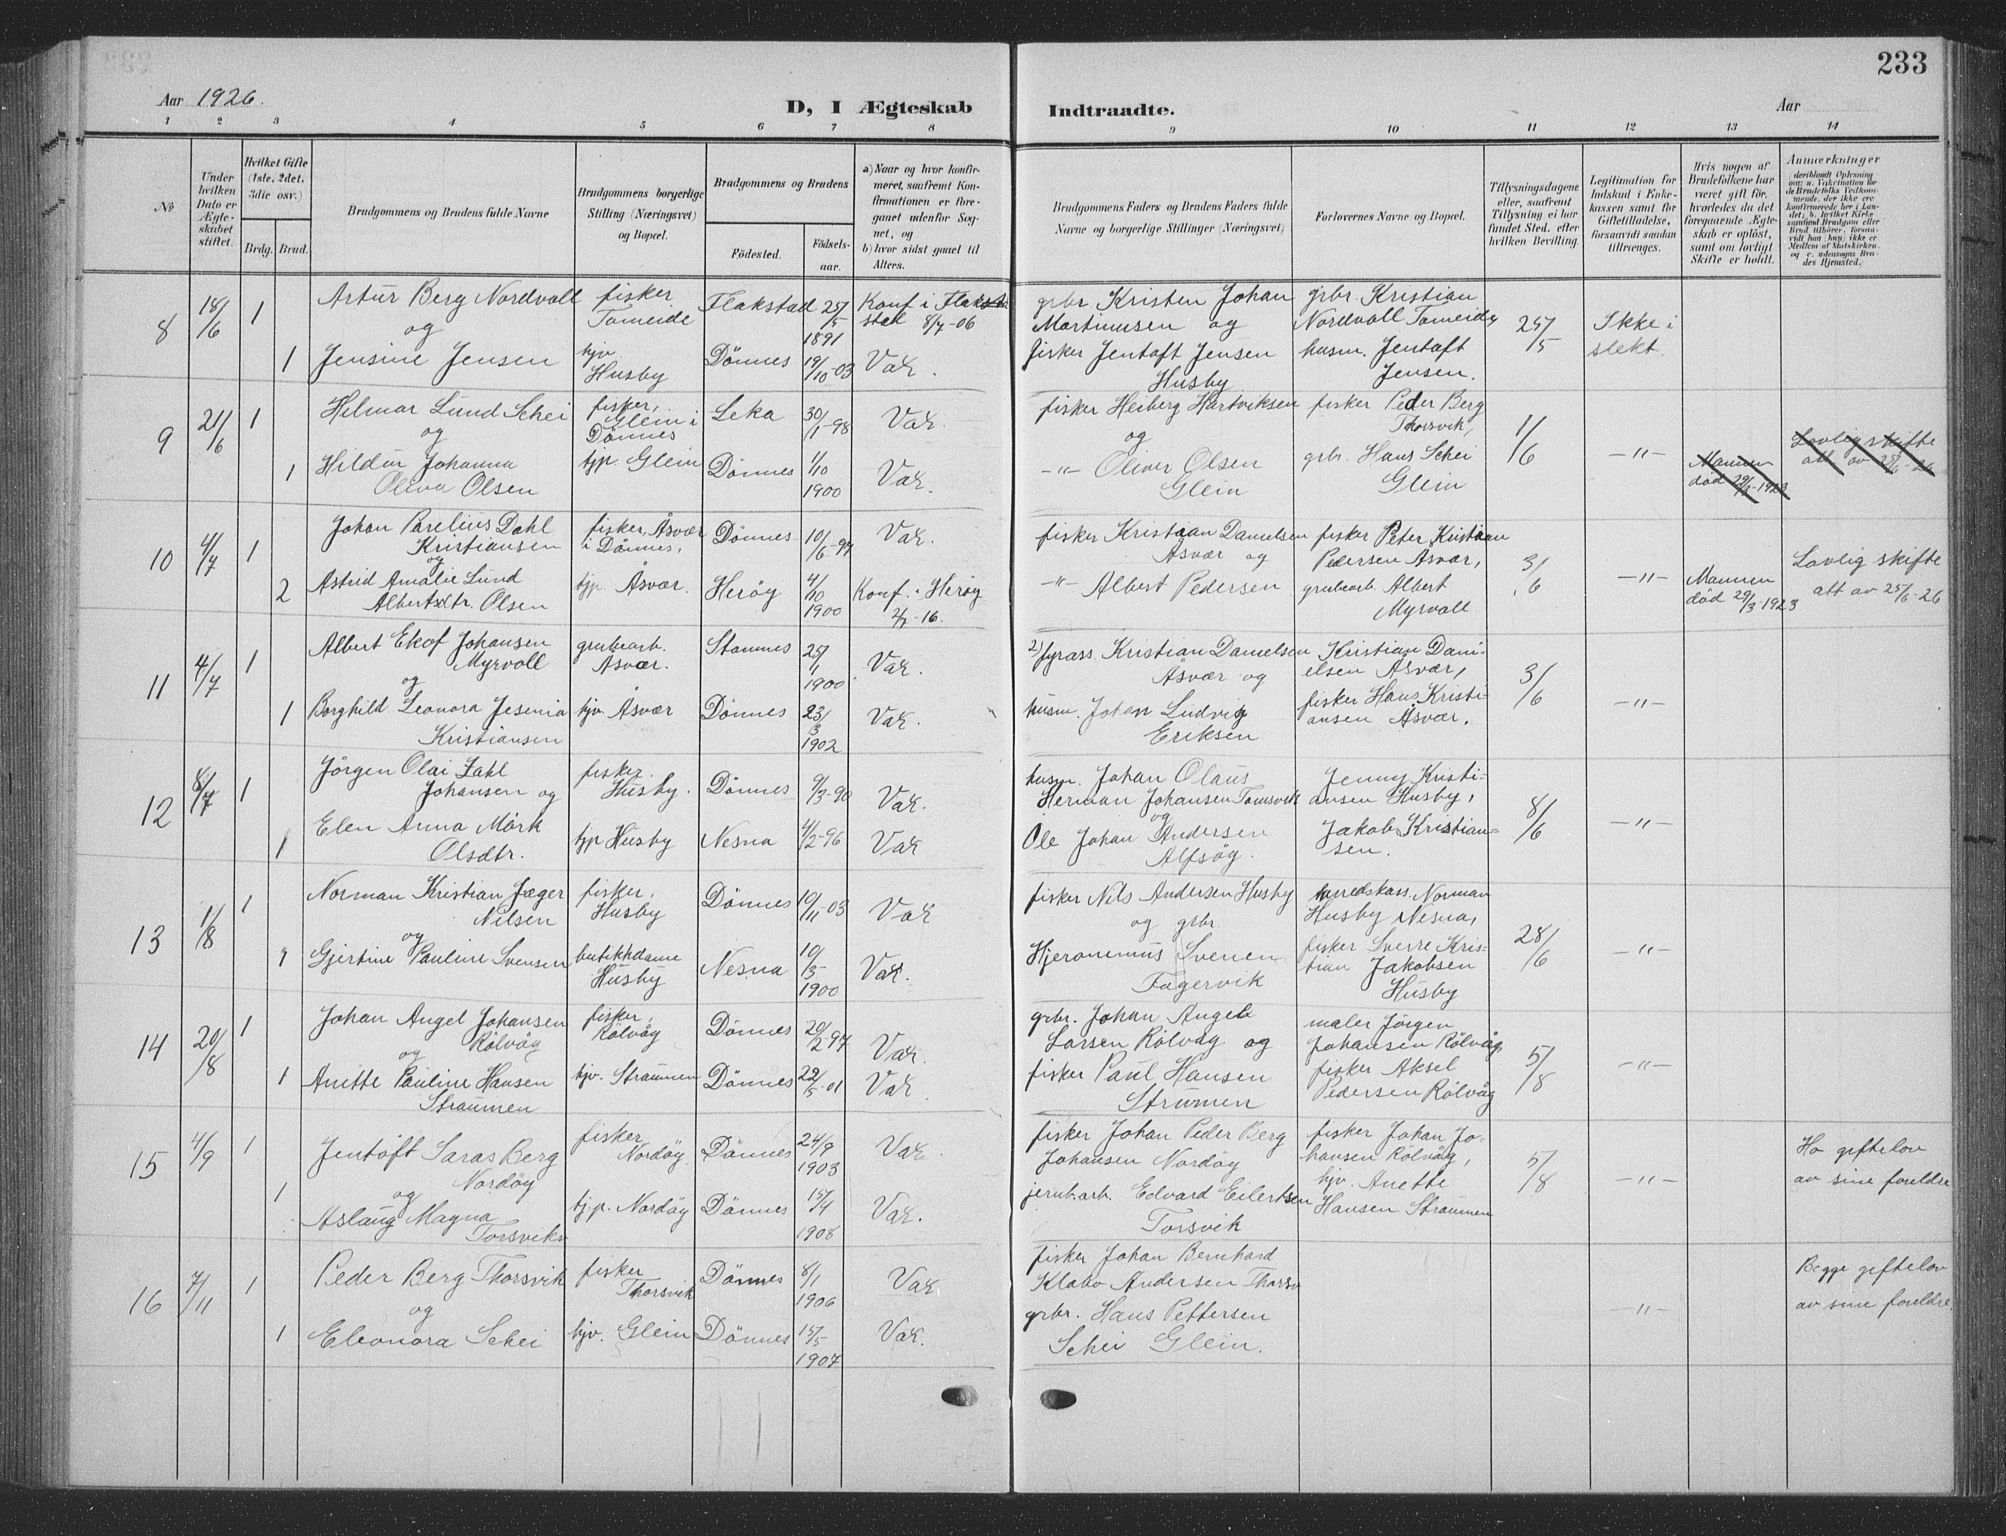 233
Aar 1926.
D, I Ægteskab Indtraadte.
Aar
1 2 3 4 5 6 7 8 9 10 11 12 13 14
No
Under hvilken Dato er Ægteskabet stiftet.
Hvilket Gifte (1ste, 2det. 3die osv.)
Brdg. Brud.
Brudgommens og Brudens fulde Navne
Brudgommens borgerlige Stilling (Næringsvei) og Bopæl.
Brudgommens og Brudens
Fødested.
Fødselsaar.
a) Naar og hvor konfirmeret, saafremt Konfirmationen er foregaaet udenfor Sognet, og
b) hvor sidst gaaet til Alters.
Brudgommens Faders og Brudens Faders fulde Navne og borgerlige Stillinger (Næringsvei)
Forlovernes Navne og Bopæl.
Tillysningsdagene eller, saafremt Tillysning ei har fundet Sted. efter hvilken Bevilling.
Legitimation for Indskud i Enkekassen samt for Giftetilladelse, forsaavidt saadan tiltrænges.
Hvis nogen af Brudefolkene har været gift før, hvorledes da det foregaaende Ægteskab er opløst, samt om lovligt Skifte er holdt.
Anmærkninger
8 18/6 1 Artur Berg Nordvoll fisker Tomeide Flakstad 25/5 1891 Konf i Flakstad 8/7-06
og
1 Jensine Jensen hjv. Husby Dönnes 19/10-03 Var.
grbr Kristen Johan Martinusen og
fisker Jentoft Jensen Husby
grbr. Kristian Nordvoll Tomeide,
husm. Jentoft Jensen.
25/5 Ikke i slekt.
9 21/6 1 Hilmar Lund Schei fisker, Glein i Dönnes Leka 30/1-98 Var.
og
1 Hildur Johanna Oliva Olsen hjp. Glein Dönnes 1/10 1900 Var.
fisker Heiberg Hartviksen
og
-"- Oliver Olsen Glein
fisker Peder Berg Thorsvik,
grbr. Hans Schei Glein
1/6 -"- Mannen död 29/3-1923 Lovlig skifte att av 25/6-26
10 4/7 1 Johan Parelius Dahl Kristiansen fisker, Åsvær i Dönnes, Dönnes 10/6-97 Var.
og
2 Astrid Amalie Lund Albertsdtr. Olsen hjp. Åsvær. Heröy 4/10 1900 Konf. i Heröy 2/7-16.
fisker Kristian Danielsen Åsvær og
-"- Albert Pedersen
fisker Peter Kristian Pedersen Åsvær,
grubearb Albert Myrvoll
3/6 -"- Mannen död 29/3-1923 Lovlig skifte att av 25/6-26
11 4/7 1 Albert Ekof Johansen Myrvoll grubearb. Åsvær. Stamnes 25/1 1900 Var.
og
1 Borghild Leonora Jesenia Kristiansen hjv. Åsvær Dönnes 23/3 1902 Var.
2) fyrass. Kristian Danielsen Åsvær og
husm. Johan Ludvig Eriksen
Kristian Danielsen Åsvær,
fisker Hans Kristiansen Åsvær.
3/6 -"-
12 8/7 1 Jörgen Olai Zahl Johansen og fisker. Husby. Dönnes 9/3-90 Var.
1 Elen Anna Mörk Olsdtr. hjp Husby Nesna 4/2-96 Var
husm. Johan Olaus Herman Johansen Tomsvik
og
Ole Johan Andersen Alfsög.
Jenny Kristiansen Husby,
Jakob Kristiansen.
8/6 -"-
13 1/8 1 Norman Kristian Jæger Nilsen fisker, Husby Dönnes 10/11-03 Var
og
1 Gjertine Pauline Svensen butikkdame Husby Nesna 10/3- 1900 Var.
fisker Nils Andersen Husby
og grbr.
Hjeronemus Svenen Fagervik
herredskass. Norman Husby Nesna,
fisker Sverre Kristian Jakobsen Husby
28/6 -"-
14 20/8 1 Johan Angel Johansen Rölvåg fisker, Rölvåg Dönnes 20/2-97 Var.
og
1 Anette Pauline Hansen Straumen hjv. Straumen Dönnes 22/5-01 Var.
grbr. Johan Angel Larsen Rölvåg og
fisker Paul Hansen Strumen
maler Jörgen Johansen Rölvåg
fisker Aksel Pedersen Rölvåg
5/8 -"-
15 4/9 1 Jentoft Saras Berg Nordöy fisker Nordöy. Dönnes 24/9 1903 Var.
og
1 Aslaug Magna Torsvik hj.p. Nordöy Dönnes 15/4 1908 Var.
fisker Johan Peder Berg Johansen Nordöy
jernb.arb. Edvard Eilertsen Torsvik
fisker Johan Johansen Rölvåg,
hjv. Anette Hansen Straumen
5/8 -"- Ho giftelov av sine foreldre
16 7/11 1 Peder Berg Thorsvik fisker Thorsvik Dönnes 8/1 1906 Var
og
1 Eleonora Schei hjv. Glein Dönnes 15/5 1907 Var.
fisker Johan Bernhard Klabo Andersen Thorsv
grbr. Hans Pettersen Schei Glein.
-"- Begge giftelov av sine foreldre